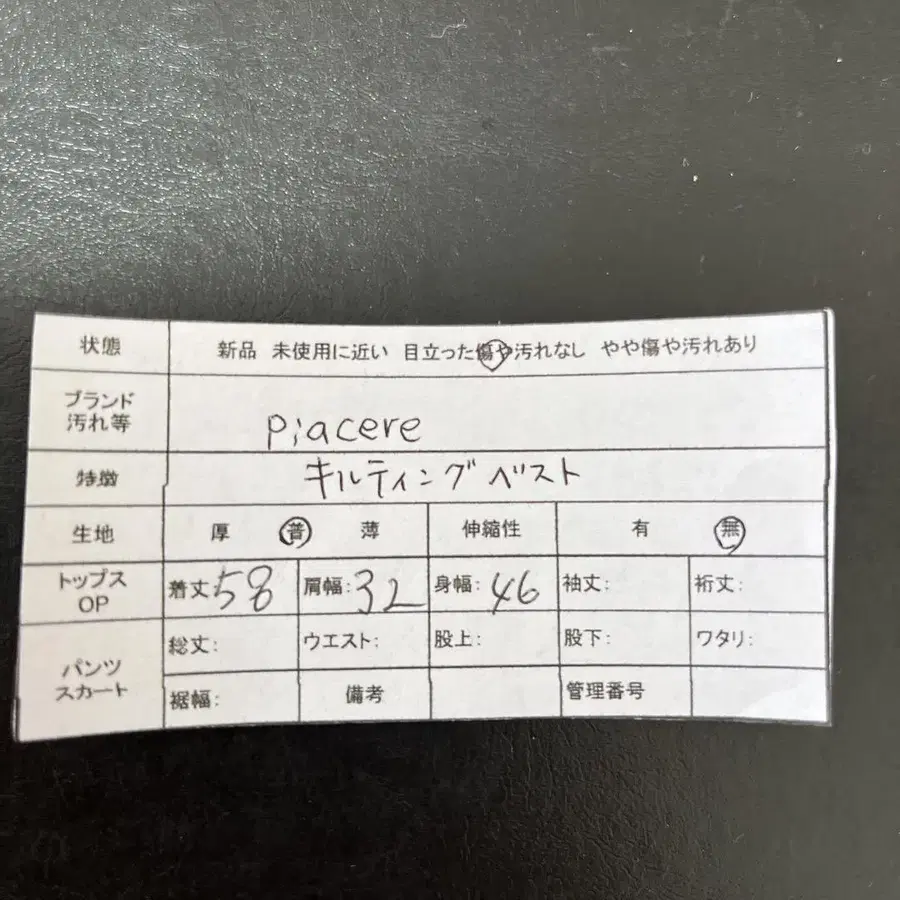 状態 新品 未使用に近い 目立った傷や汚れなし やや傷や汚れあり
ブランド
汚れ等
piacere
特徴 キルティングベスト
生地 厚 普 薄 伸縮性 有 無
トップス
OP
着丈58 肩幅:32 身幅:46 袖丈: 裄丈:
パンツ
スカート
総丈: ウエスト: 股上: 股下: ワタリ:
裾幅: 備考 管理番号